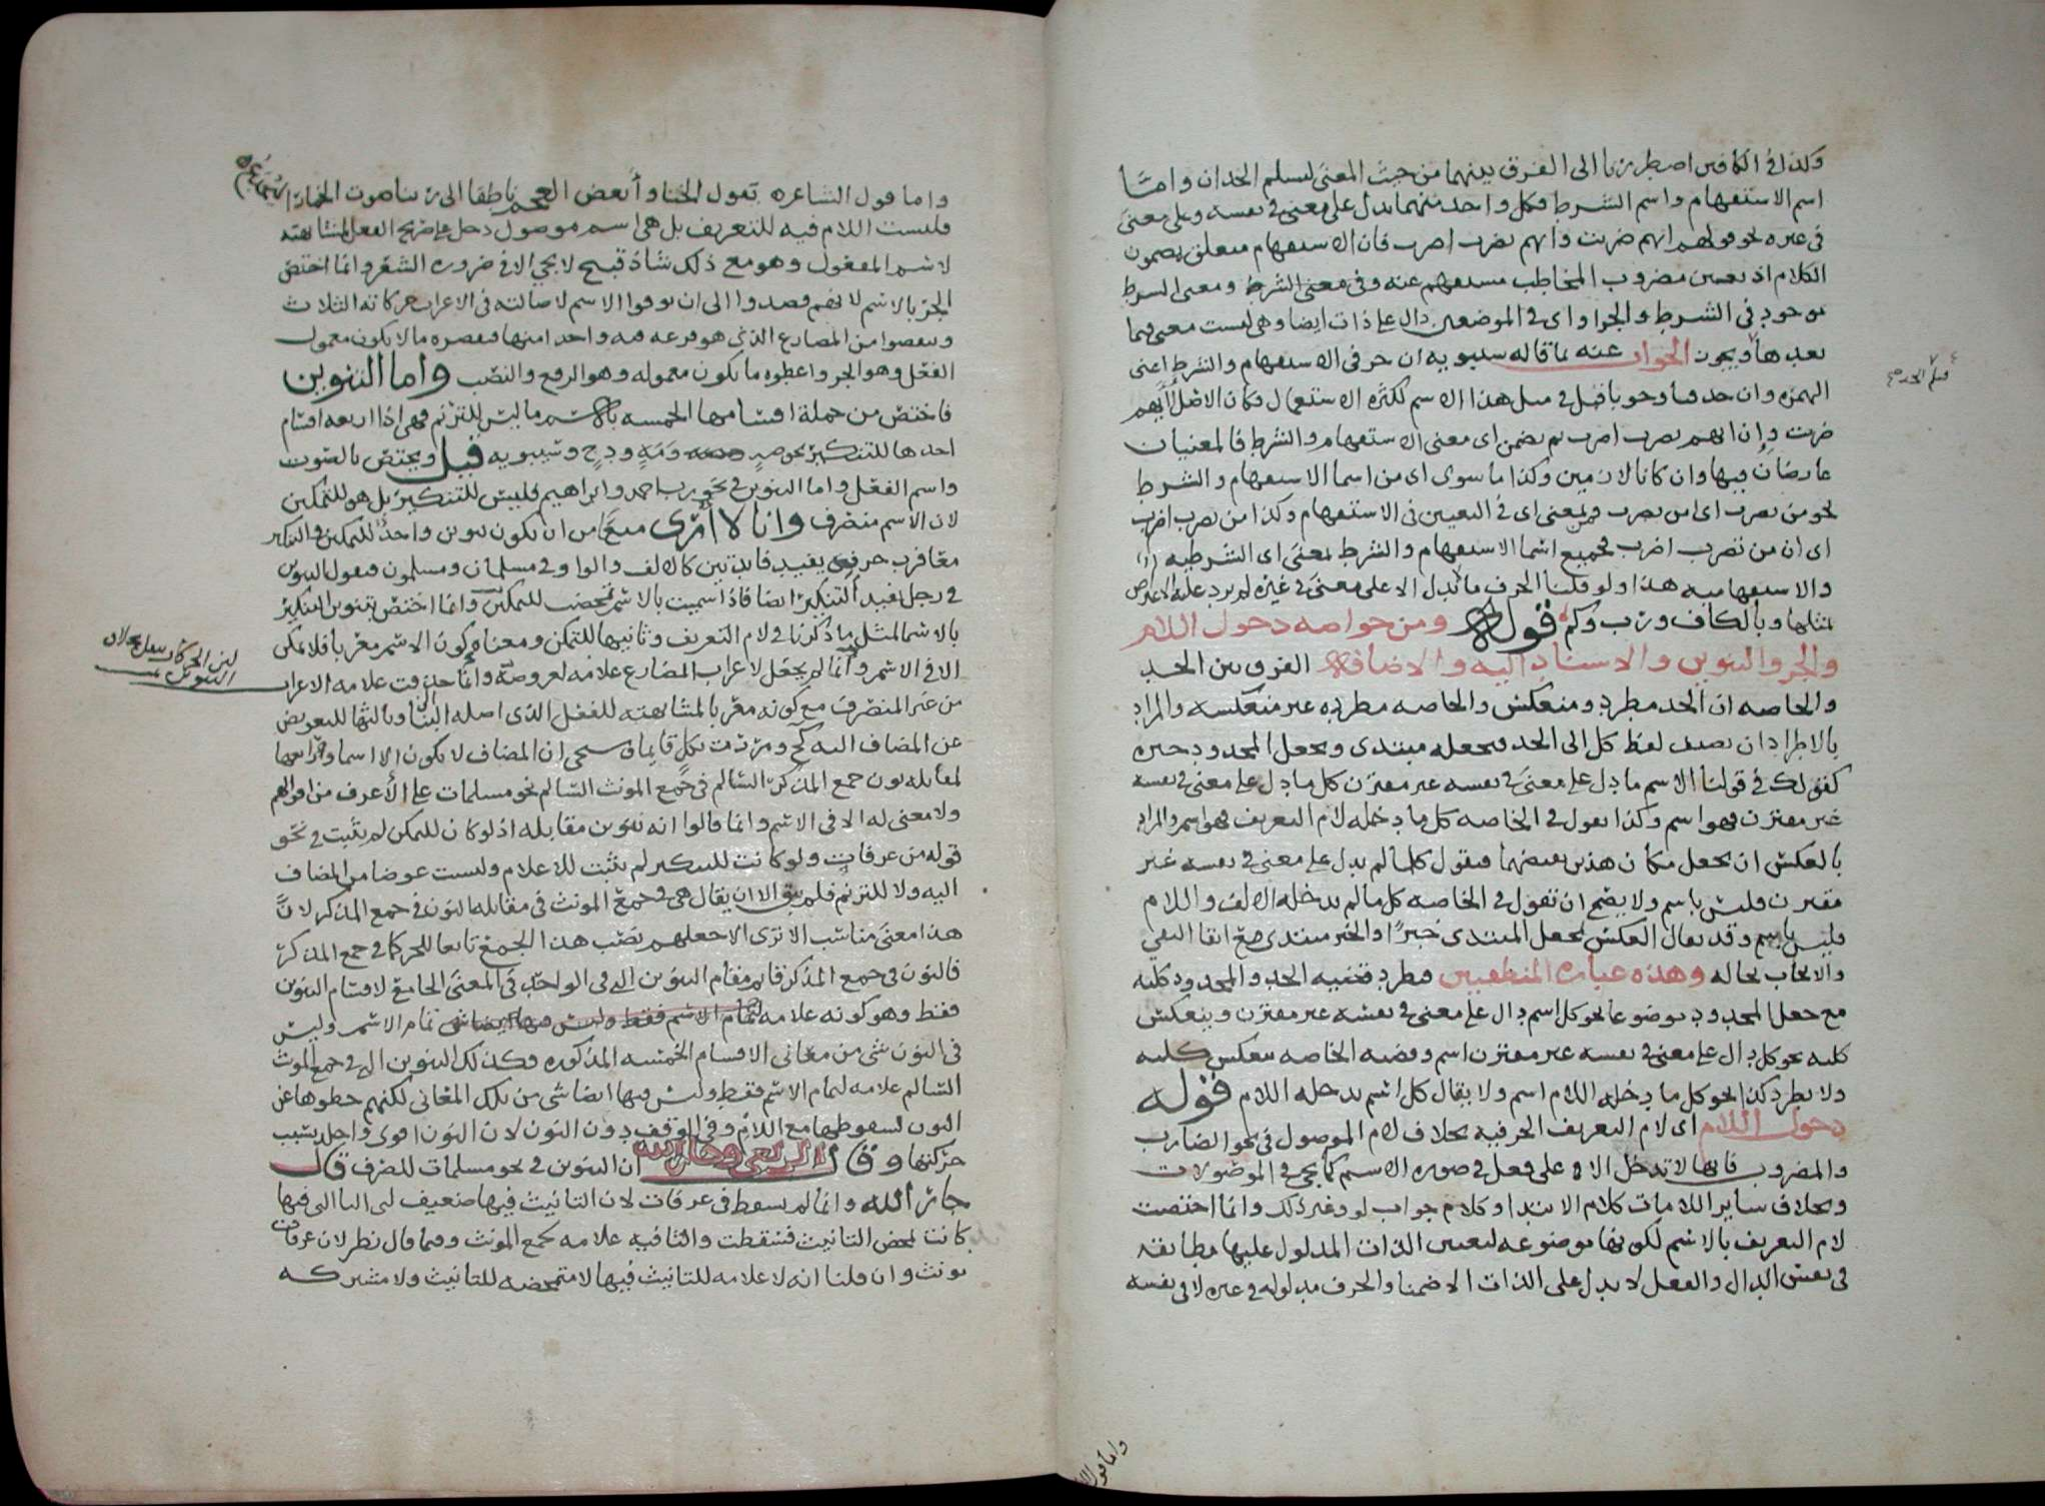 وكذا في الكافين اضطررنا الى الفرق بينهما من حيث المعنى ليسلم الحدان واما
اسم الاستفهام واسم الشرط فكل واحد منهما يدل على معنى في نفسه وعلى معنى
في غيره نحو قولهم ايهم ضربت وايهم تضرب اضرب فان الاستفهام متعلق بمضمون
الكلام اذ تعيين مضروب المخاطب مستفهم عنه وفي معنى الشرط ومعنى الشرط
موجود في الشرط والجزا واى في الموضعين دال على ذات ايضا وهي ليست معنى فيما
بعدها ويجوز الجواب عنه بما قاله سيبويه ان حرفى الاستفهام والشرط اعنى
الهمزة وان حذفا وجوبا قبل مثل هذا الاسم لكثرة الاستعمال فكان الاصل أأيهم
ضربت وإن ايهم تضرب اضرب ثم تضمن اى معنى الاستفهام والشرط فالمعنيان
عارضان فيها وان كانا لازمين وكذا ما سوى اى من اسما الاستفهام والشرط
نحو من تضرب اى امن تضرب فمن بمعنى اى في التعيين في الاستفهام وكذا من تضرب اضرب
اى ان من تضرب اضرب فجميع اسما الاستفهام والشرط بمعنى اى الشرطيه
والاستفهاميه هذا ولو قلنا الحرف ما لا يدل الا على معنى في غيره لم يرد عليه الاعتراض
بمثلها وبالكاف ورب وكم قوله ومن خواصه دخول اللام
والجر والتنوين والاسناد اليه والاضافة الفرق بين الحد
والخاصه ان الحد مطرد ومنعكس والخاصه مطرده غير منعكسه والمراد
بالاطراد ان تضيف لفظ كل الى الحد فتجعله مبتدى وتجعل المحدود خبره
كقولك في قولنا الاسم ما دل على معنى في نفسه غير مقترن كل ما دل على معنى في نفسه
غير مقترن فهو اسم وكذا تقول في الخاصه كل ما دخله لام التعريف فهو اسم والمراد
بالعكس ان تجعل مكان هذين نقيضهما فتقول كلما لم يدل على معنى في نفسه غير
مقترن فليس باسم ولا يصح ان تقول في الخاصه كل ما لم يدخله الالف واللام
فليس باسم وقد يقال العكس بجعل المبتدى خبرًا والخبر مبتدى مع ابقا النفي
والايجاب بحاله وهذه عبارة المنطقيين فيطرد قضيه الحد والمحدود كليه
مع جعل المحدود موضوعا نحو كل اسم دال على معنى في نفسه غير مقترن وينعكس
كليه نحو كل دال على معنى في نفسه غير مقترن اسم وقضيه الخاصه تنعكس كليه
ولا تطرد كذا نحو كل ما دخله اللام اسم ولا يقال كل اسم يدخله اللام قوله
دخول اللام اى لام التعريف الحرفيه بخلاف لام الموصول في نحو الضارب
والمضروب فانها لا تدخل الا على فعل في صورة الاسم كما يجى في الموصولات
وبخلاف ساير اللامات كلام الابتدا وكلام جواب لو وغير ذلك وانما اختصت
لام التعريف بالاسم لكونها موضوعه لتعيين الذات المدلول عليها مطابقه
في نفس الدال والفعل لا يدل على الذات الا ضمنا والحرف مدلوله في غيره لا في نفسه
واما قول
واما قول الشاعر تقول الخنا وأبغض العجم ناطقا الى ربنا صوت الحمار اليجدع
فليست اللام فيه للتعريف بل هي اسم موصول دخل على صريح الفعل لمشابهته
لاسم المفعول وهو مع ذلك شاذ قبيح لا يجي الا في ضرورة الشعر وانما اختص
الجر بالاسم لانهم قصدوا الى ان يوفوا الاسم لاصالته في الاعراب حركاته الثلاث
وينقصوا من المضارع الذي هو فرعه فيه واحدا منها فنقصوه ما لا يكون معمول
الفعل وهو الجر واعطوه ما يكون معموله وهو الرفع والنصب واما التنوين
فاختص من جملة اقسامها الخمسه بالاسم ما ليس للترنم فهى اذا اربعه اقسام
احدها للتنكير نحو صهٍ ومهٍ ودحٍ وسيبويه قيل ويختص بالصوت
واسم الفعل واما التنوين في نحو رب احمد وابراهيم فليس للتنكير بل هو للتمكين
لان الاسم منصرف وانا لا أرى منعا من ان يكون تنوين واحد للتمكين والتنكير
معا فرب حرف يفيد فايدتين كالالف والواو في مسلمان ومسلمون فنقول التنوين
في رجل يفيد التنكير ايضا فاذا سميت بالاسم تمحض للتمكين وانما اختص تنوين التنكير
بالاسم لمثل ما ذكرنا في لام التعريف وثانيها للتمكن ومعناه كون الاسم معربا فلا يمكن
الا في الاسم وانما لم يجعل لاعراب المضارع علامه لعروضه وانما حذفت علامه الاعراب
من غير المنصرف مع كونه معربا لمشابهته للفعل الذى اصله البنا وثالثها للتعويض
عن المضاف اليه كح ومررت بكلٍ قايما وسيجى ان المضاف لا يكون الا اسما ورابعها
لمقابله نون جمع المذكر السالم في جمع المونث السالم نحو مسلمات على الأعرف من اقوالهم
ولا معنى له الا في الاسم وانما قالوا انه تنوين مقابله اذ لو كان للتمكن لم يثبت في نحو
قوله من عرفاتٍ ولو كانت للتنكير لم يثبت للاعلام وليست عوضا من المضاف
اليه ولا للترنم فلم يبق الا ان يقال هى في جمع المونث في مقابله النون في جمع المذكر لانّ
هذا معنى مناسب الا ترى الا جعلهم نصب هذا الجمع تابعا للجر كما في جمع المذكر
فالنون في جمع المذكر قايم مقام التنوين التى في الواحد في المعنى الجامع لاقسام التنوين
فقط وهو كونه علامه لتمام الاسم فقط وليس فيها ايضا شى تمام الاسم وليس
في النون شى من معانى الاقسام الخمسه المذكوره فكذلك التنوين التى في جمع المونث
السالم علامه لتمام الاسم فقط وليس فيها ايضا شى من تلك المعانى لكنهم حطوها عن
النون لسقوطها مع اللام وفي الوقف دون النون لان النون اقوى واجلد بسبب
حركتها وقال الربعى وجار الله ان التنوين في نحو مسلمات للصرف قال
جار الله وانما لم يسقط في عرفات لان التانيث فيها ضعيف لان التا التى فيها
كانت لمحض التانيث فسقطت والثانيه علامه لجمع المونث وفيما قال نظر لان عرفات
مونث وان قلنا انه لا علامه للتانيث فيها لا متمحضه للتانيث ولا مشتركه